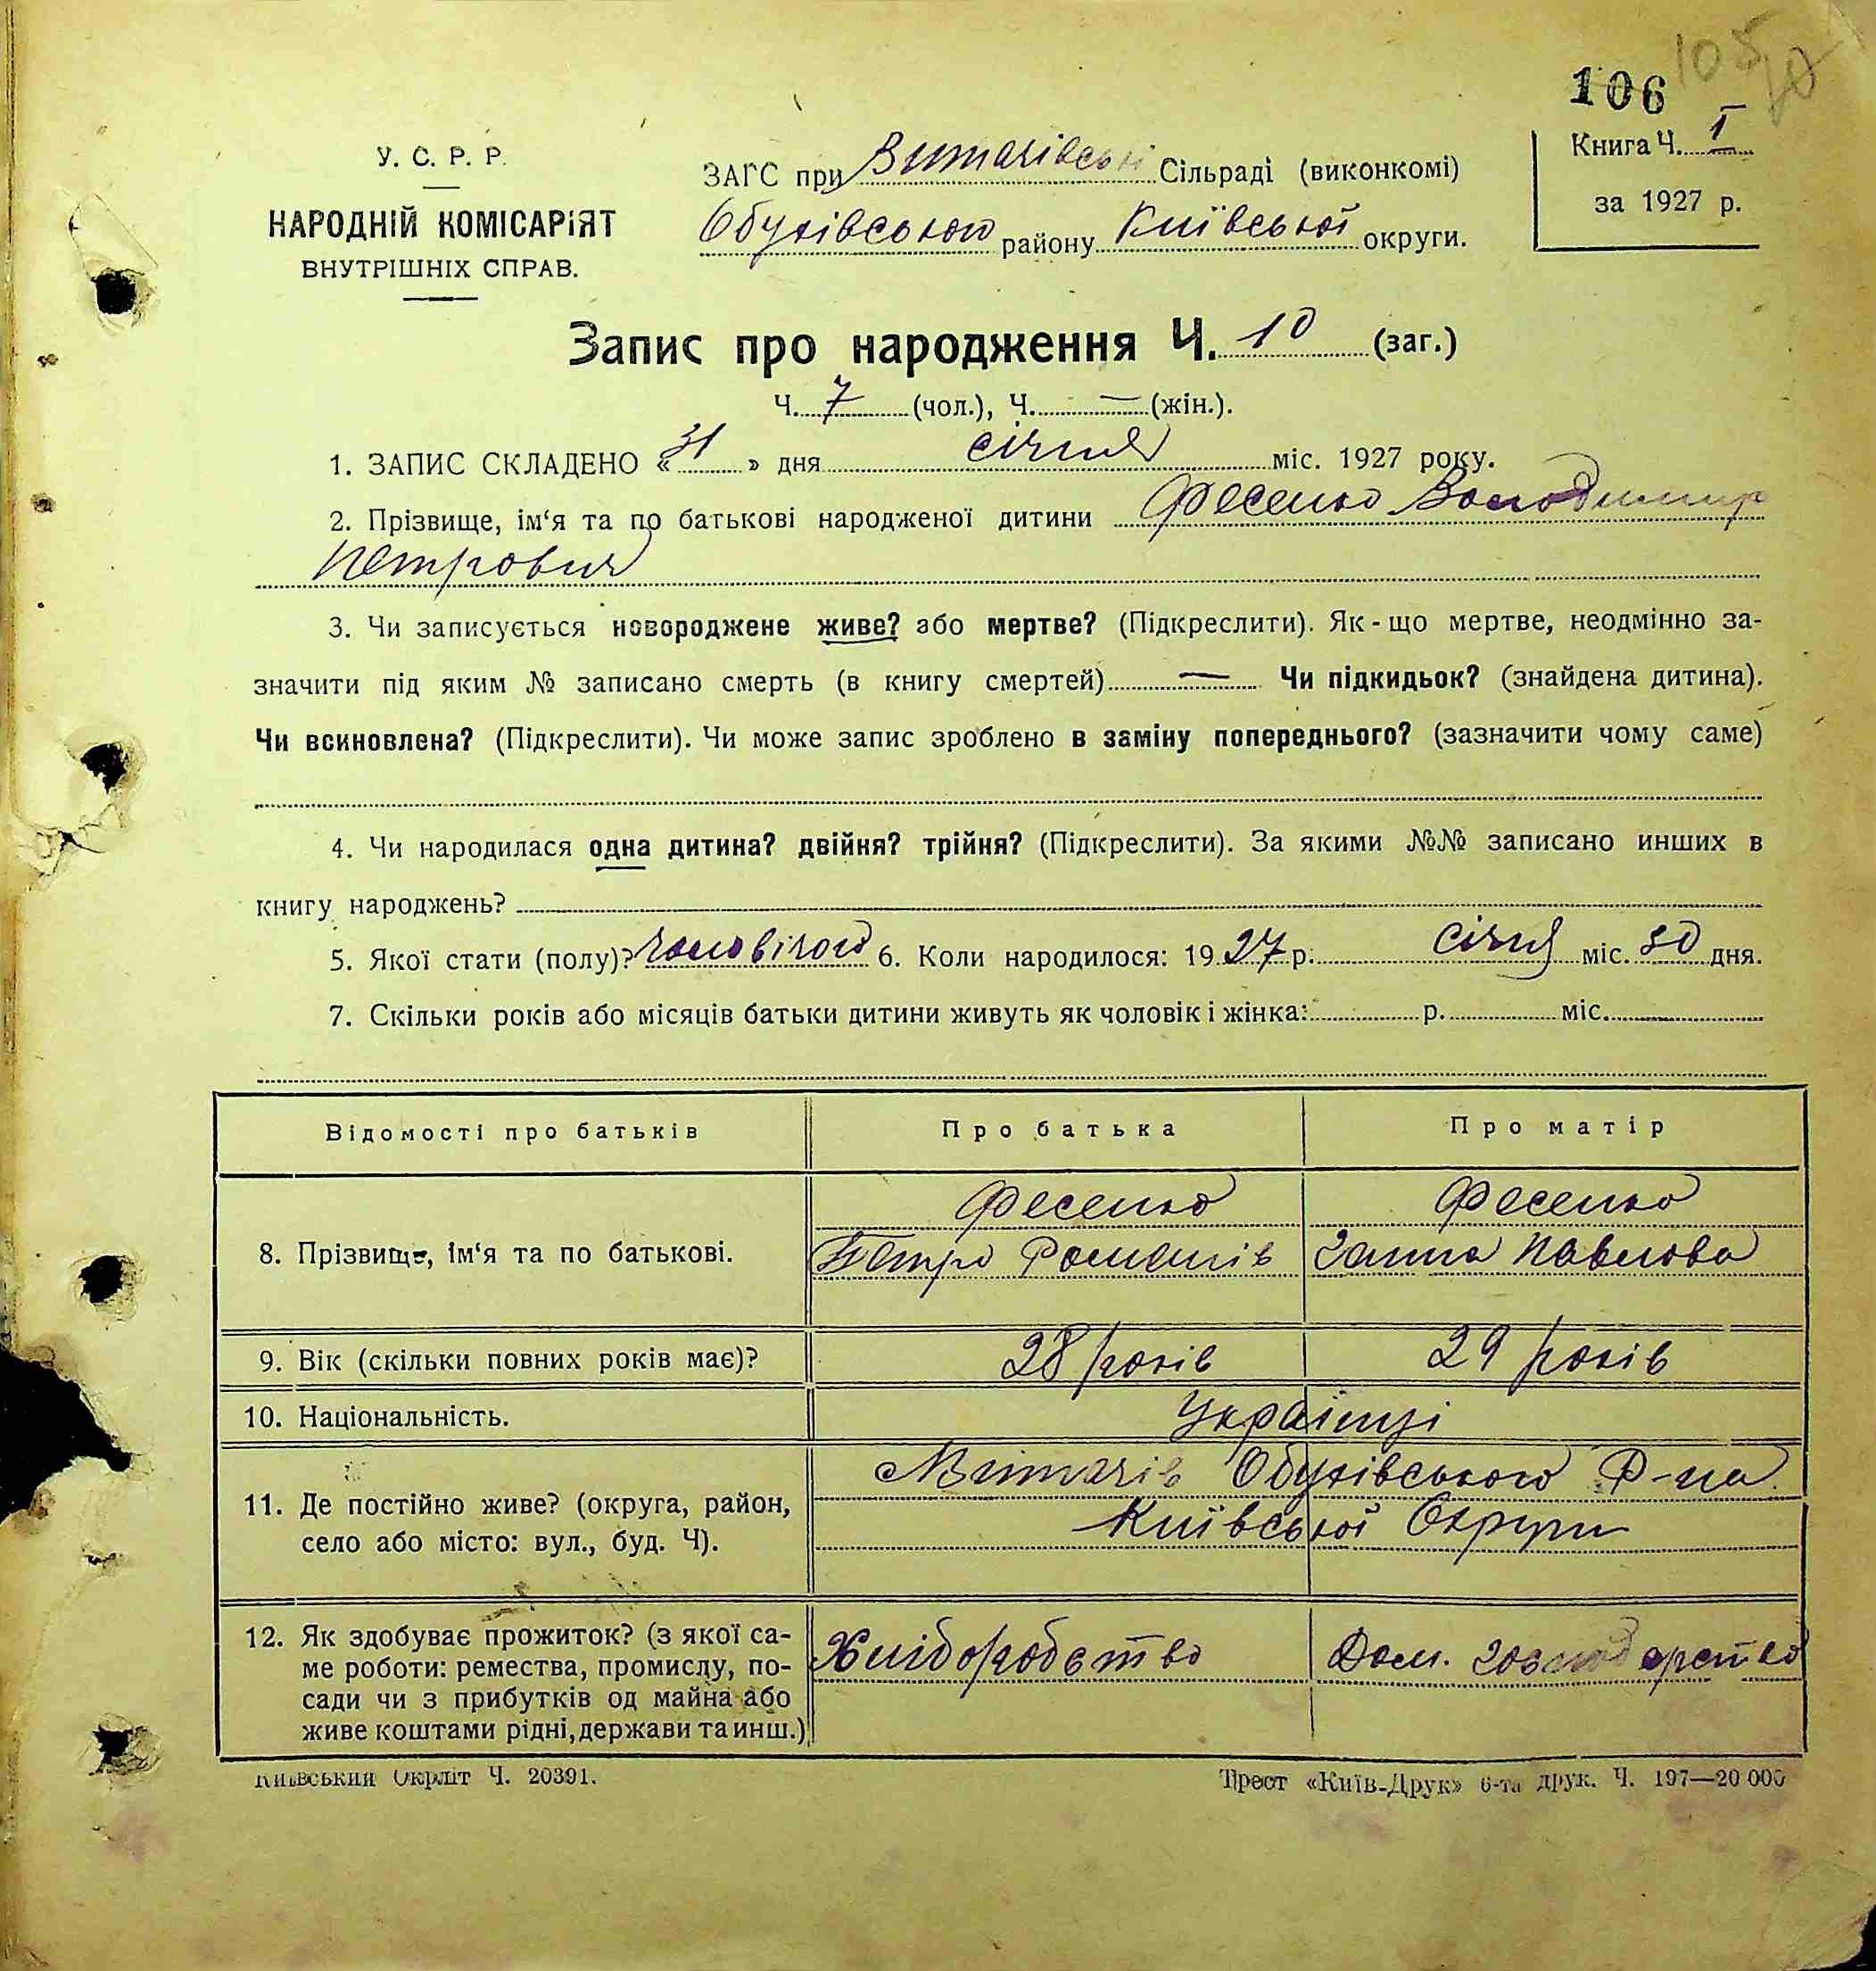 106 105
У. С. Р. Р.
НАРОДНІЙ КОМІСАРІЯТ
ВНУТРІШНІХ СПРАВ.
ЗАГС при Витачівські Сільраді (виконкомі)
Обухівського району Київської округи.
Книга Ч. I
за 1927 р.
Запис про народження Ч. 10 (заг.)
Ч. 7 (чол.), Ч. — (жін.).
1. ЗАПИС СКЛАДЕНО « 31 » дня січня міс. 1927 року.
2. Прізвище, ім‘я та по батькові народженої дитини Фесенко Володимир
Петрович
3. Чи записується новороджене живе? або мертве? (Підкреслити). Як-що мертве, неодмінно за-
значити під яким № записано смерть (в книгу смертей) — Чи підкидьок? (знайдена дитина).
Чи всиновлена? (Підкреслити). Чи може запис зроблено в заміну попереднього? (зазначити чому саме)
4. Чи народилася одна дитина? двійня? трійня? (Підкреслити). За якими №№ записано инших в
книгу народжень?
5. Якої стати (полу)? чоловічої 6. Коли народилося: 1927 р. січня міс. 30 дня.
7. Скільки років або місяців батьки дитини живуть як чоловік і жінка: р. міс.
Відомості про батьків Про батька Про матір
8. Прізвище, ім‘я та по батькові.
Фесенко
Петро Романів
Фесенко
Ганна Павлова
9. Вік (скільки повних років має)? 28 років 29 років
10. Національність. Українці
11. Де постійно живе? (округа, район,
село або місто: вул., буд. Ч).
Витачів Обухівського Р-на
Київської Округи
12. Як здобуває прожиток? (з якої са-
ме роботи: ремества, промислу, по-
сади чи з прибутків од майна або
живе коштами рідні, держави та инш.)
Хліборобство
Дом. господарство
Київський Окрліт Ч. 20391.
Трест «Київ-Друк» 6-та друк. Ч. 197—20 000